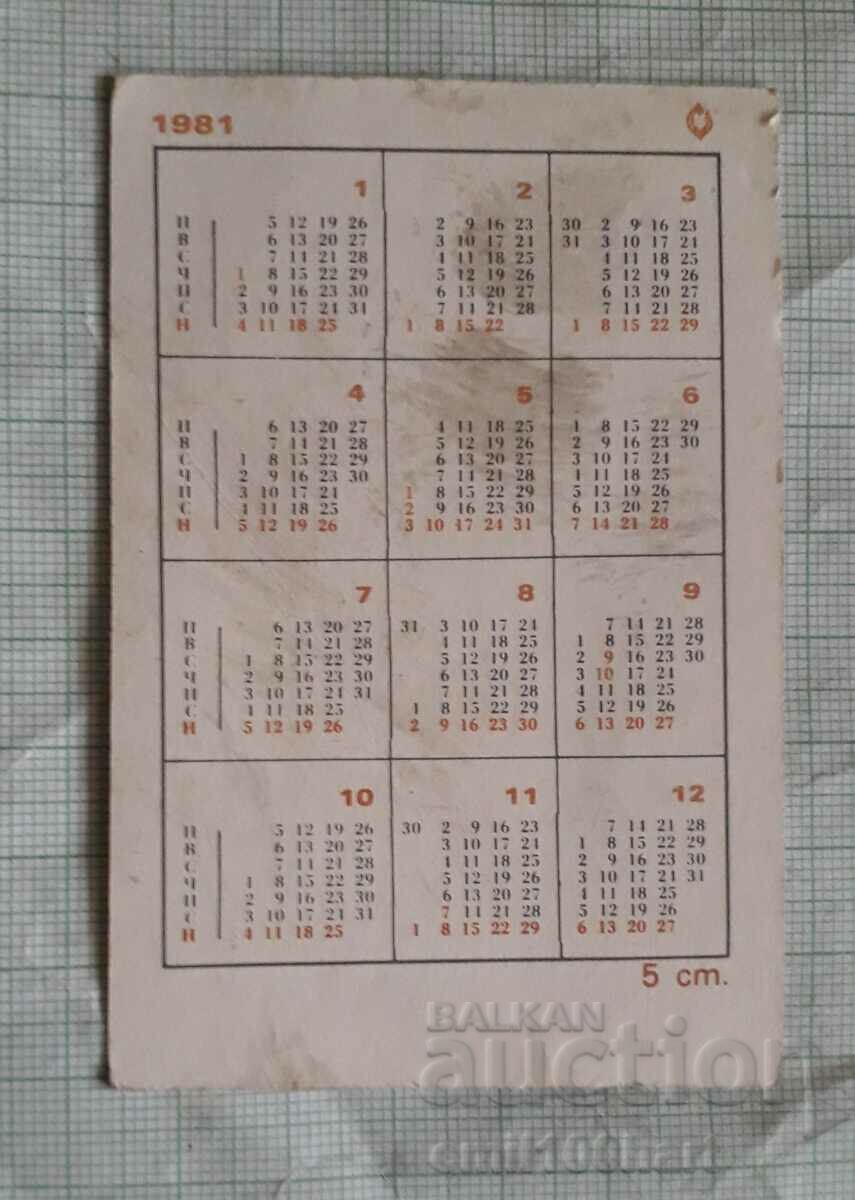 1981
1 2 3
П 5 12 19 26 2 9 16 23 30 2 9 16 23
В 6 13 20 27 3 10 17 24 31 3 10 17 24
С 7 14 21 28 4 11 18 25 4 11 18 25
Ч 1 8 15 22 29 5 12 19 26 5 12 19 26
П 2 9 16 23 30 6 13 20 27 6 13 20 27
С 3 10 17 24 31 7 14 21 28 7 14 21 28
Н 4 11 18 25 1 8 15 22 1 8 15 22 29
4 5 6
П 6 13 20 27 4 11 18 25 1 8 15 22 29
В 7 14 21 28 5 12 19 26 2 9 16 23 30
С 1 8 15 22 29 6 13 20 27 3 10 17 24
Ч 2 9 16 23 30 7 14 21 28 4 11 18 25
П 3 10 17 24 1 8 15 22 29 5 12 19 26
С 4 11 18 25 2 9 16 23 30 6 13 20 27
Н 5 12 19 26 3 10 17 24 31 7 14 21 28
7 8 9
П 6 13 20 27 31 3 10 17 24 7 14 21 28
В 7 14 21 28 4 11 18 25 1 8 15 22 29
С 1 8 15 22 29 5 12 19 26 2 9 16 23 30
Ч 2 9 16 23 30 6 13 20 27 3 10 17 24
П 3 10 17 24 31 7 14 21 28 4 11 18 25
С 4 11 18 25 1 8 15 22 29 5 12 19 26
Н 5 12 19 26 2 9 16 23 30 6 13 20 27
10 11 12
П 5 12 19 26 30 2 9 16 23 7 14 21 28
В 6 13 20 27 3 10 17 24 1 8 15 22 29
С 7 14 21 28 4 11 18 25 2 9 16 23 30
Ч 1 8 15 22 29 5 12 19 26 3 10 17 24 31
П 2 9 16 23 30 6 13 20 27 4 11 18 25
С 3 10 17 24 31 7 14 21 28 5 12 19 26
Н 4 11 18 25 1 8 15 22 29 6 13 20 27
5 ст.
BALKAN
auction
emil10thart